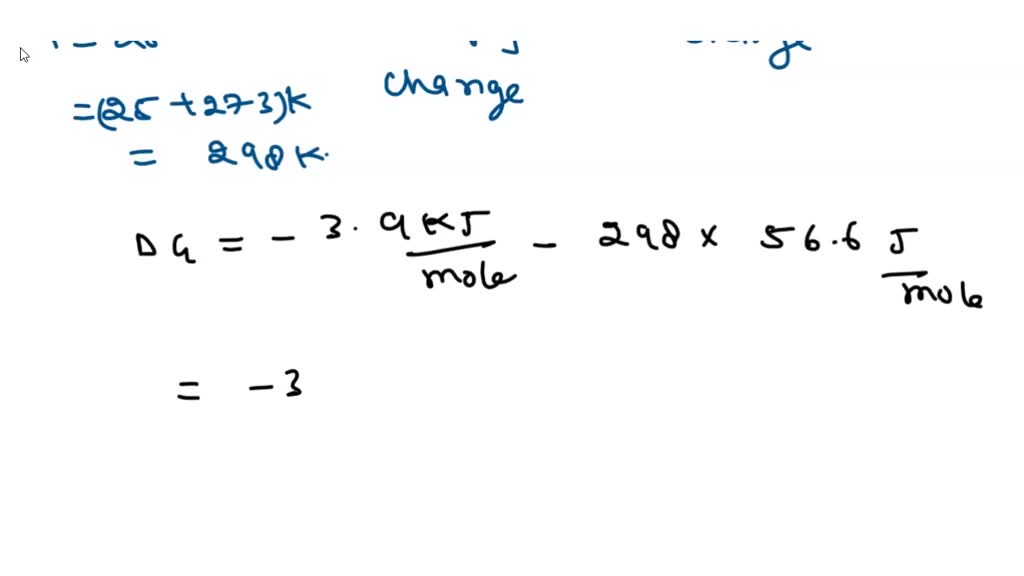 change
=(25 +273)K
= 298 K.
ΔG = - 3.9 KJ/mole - 298 × 56.6 J/mole
= -3